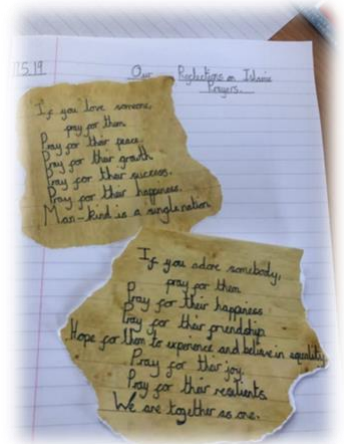 5.19
Our Reflections on Islamic
Prayers.
If you love someone,
pray for them.
Pray for their peace.
Pray for their growth.
Pray for their success.
Pray for their happiness.
Man-kind is a single nation
If you adore somebody,
pray for them
Pray for their happiness
Pray for their friendship.
Hope for them to experience and believe in equality
Pray for their joy.
Pray for their resilients.
We are together as one.